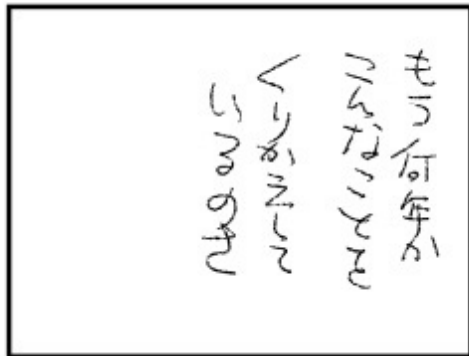 もう何年か
こんなことを
くりかえして
いるのさ